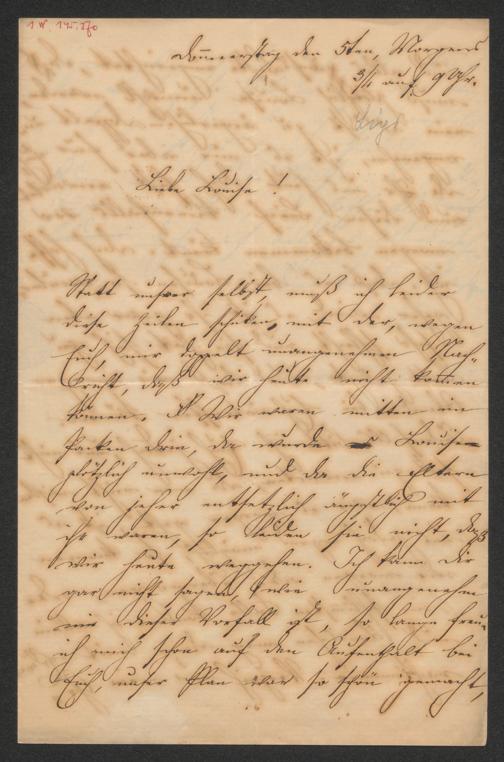 I.N. 145.270
Donnerstag den 5ten, Morgens
3/4 auf 9 Uhr.
Liebe Louise!
Statt unserer selbst, muß ich leider
diese Zeilen schicken, mit der, wegen
Euch, mir doppelt unangenehmen Nach-
richt, daß wir heute nicht kommen
können. Wir waren mitten im
Packen drin, da wurde Louise
plötzlich unwohl, und da die Eltern
von jeher entsetzlich ängstlich mit
ihr waren, so leiden sie nicht, daß
wir heute weggehen. Ich kann Dir
gar nicht sagen, wie unangenehm
mir dieser Vorfall ist, so lange freue
ich mich schon auf den Aufenthalt bei
Euch, unser Plan war so schön gemacht,